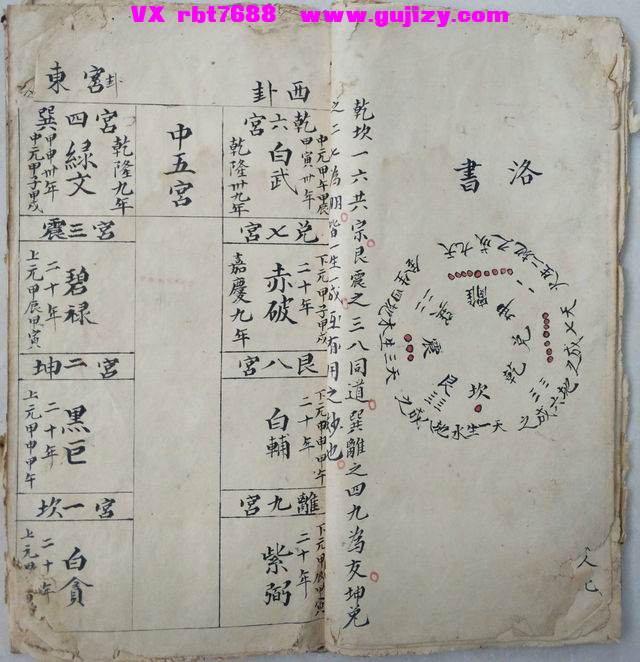 VX rbt7688 www.gujizy.com
洛書
天一生水
乾坎一六共宗艮震之三八同道巽離之四九為友坤兌
之二七為朋皆一生一成互有用之妙也
西卦
乾六宮
白武
中元甲午甲辰
甲寅卅年
乾隆卅九年
兌七宮
赤破
下元甲子甲戌
二十年
嘉慶九年
艮八宮
白輔
下元甲申甲午
二十年
離九宮
紫弼
下元甲辰甲寅
二十年
中五宮
東宮卦
巽四宮
綠文
乾隆九年
甲申卅年
中元甲子甲戌
震三宮
碧祿
二十年
上元甲辰甲寅
坤二宮
黑巨
二十年
上元甲申甲午
坎一宮
白貪
二十年
上元甲